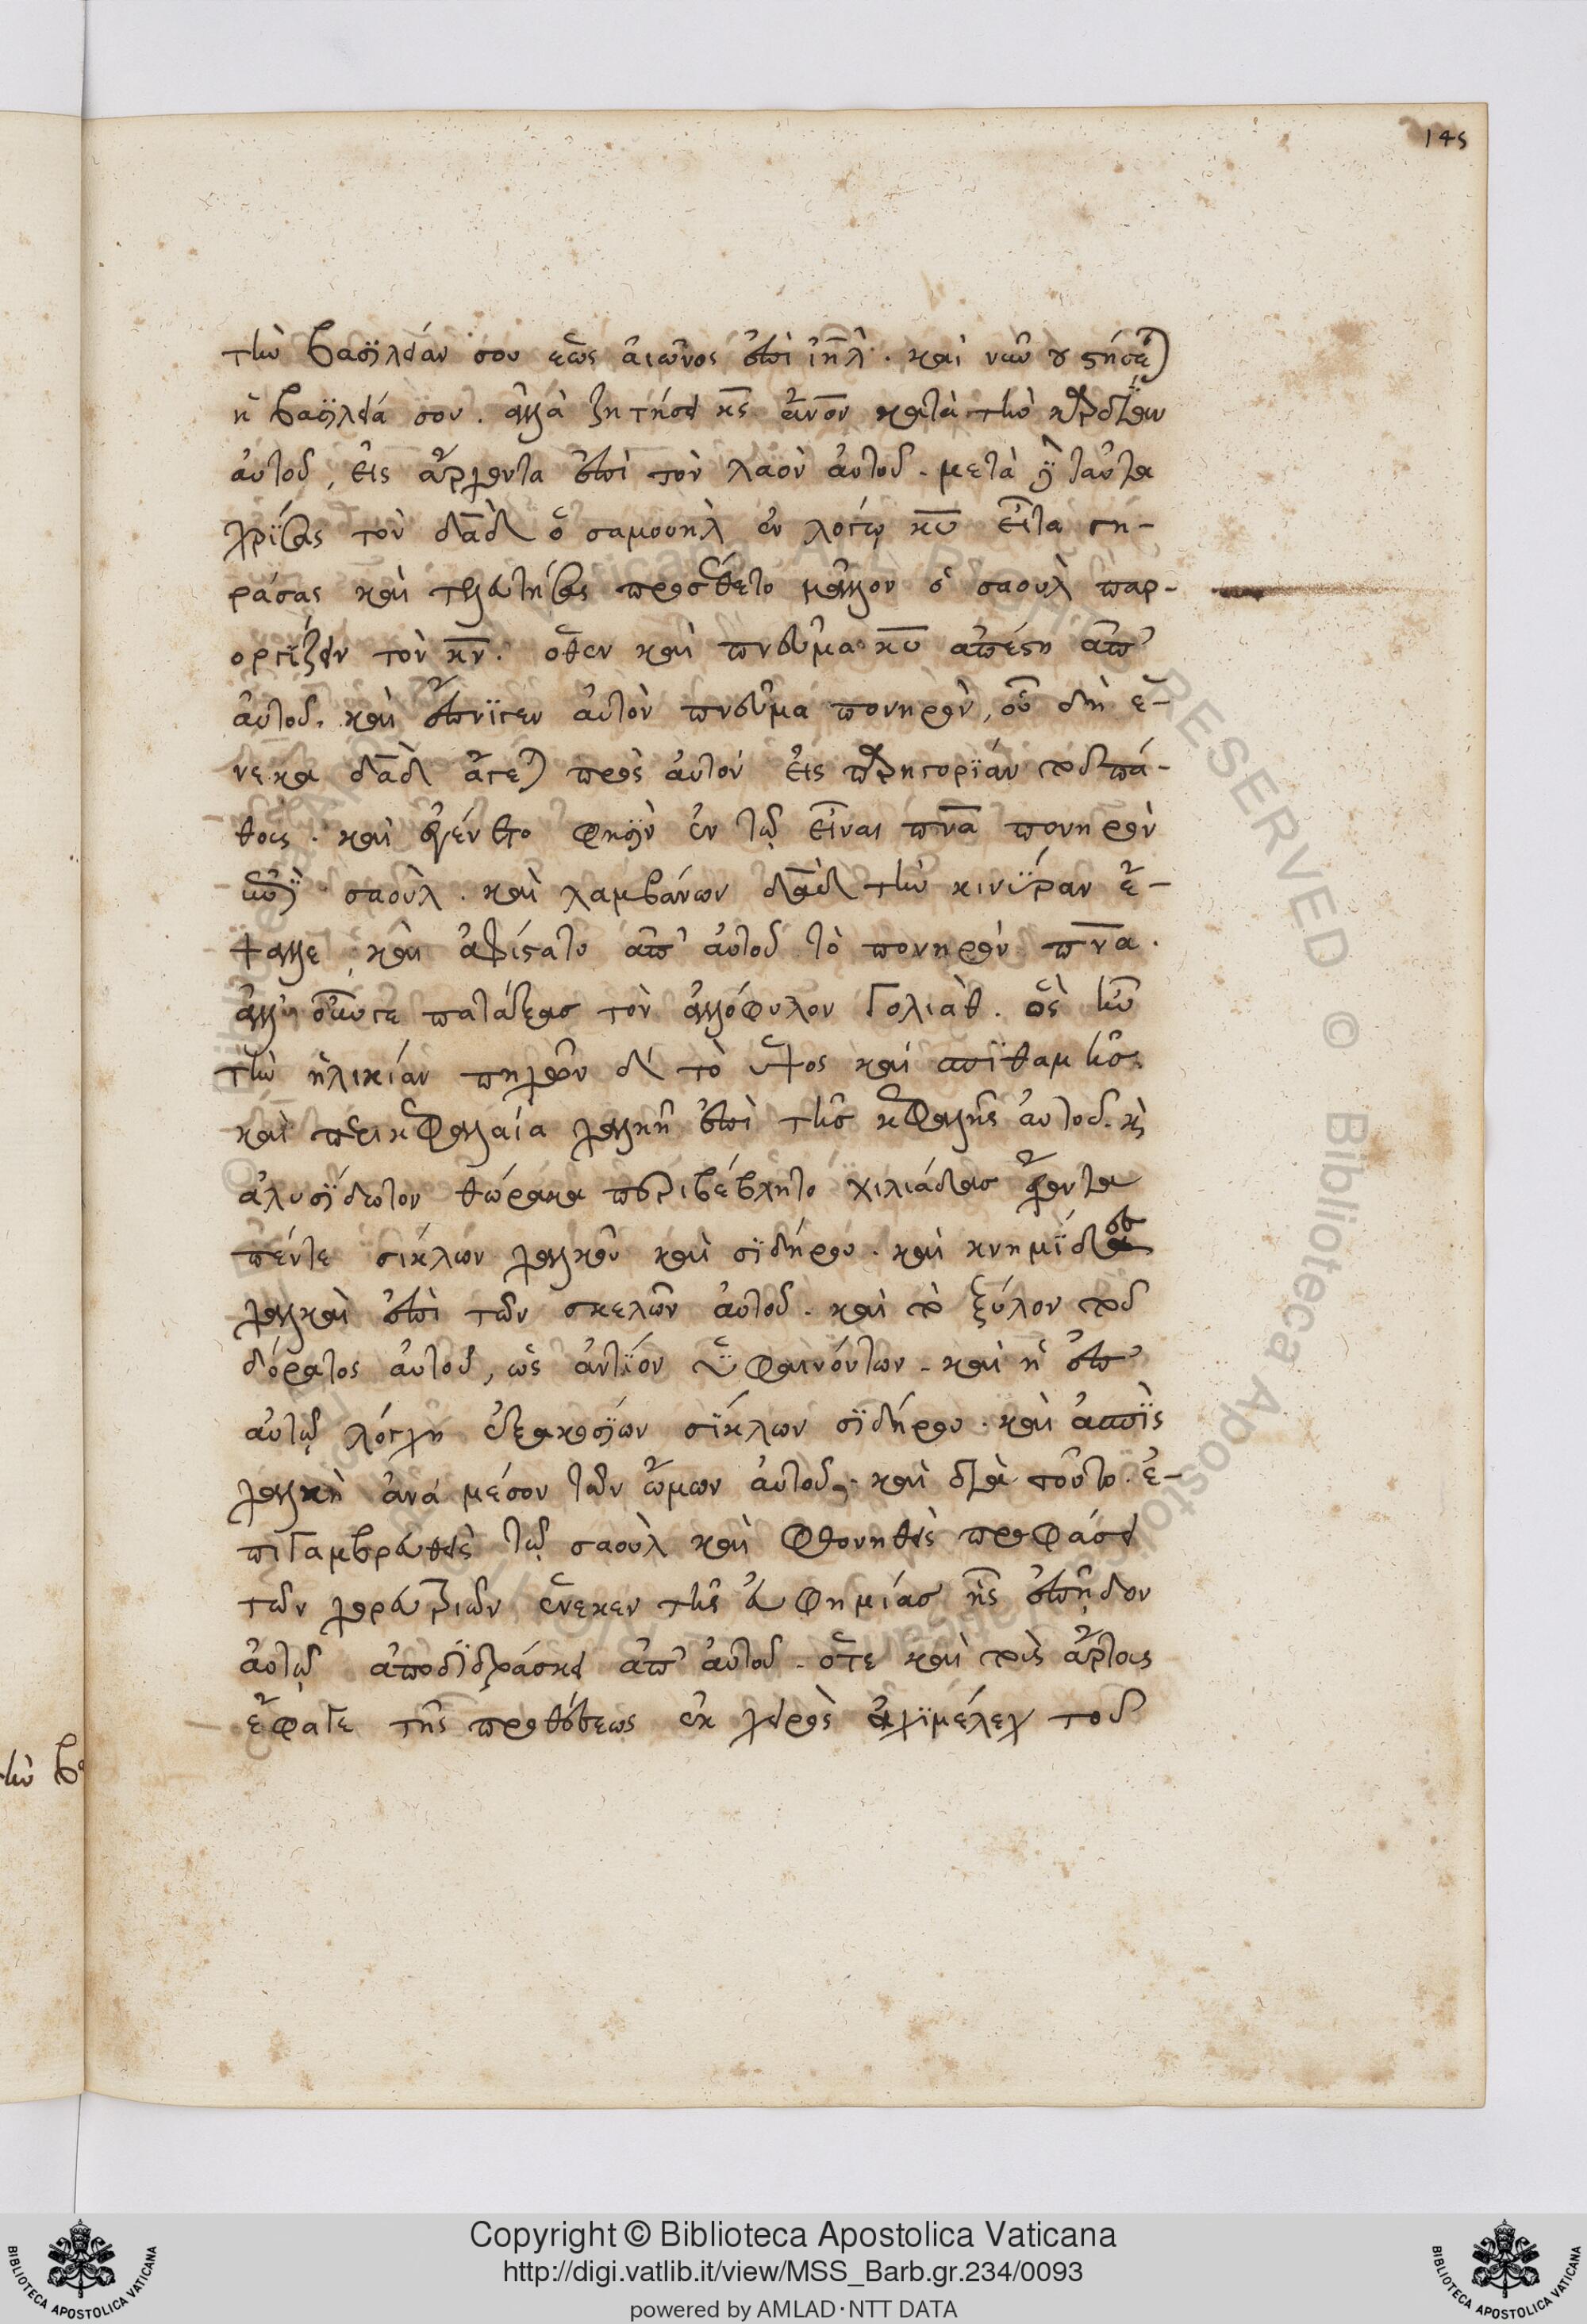 145
τὴν βασϊλείαν σου ἕως αἰῶνος ἐπὶ ἰηλ̅. καὶ νῦν οὐ στήσεται
ἡ βασϊλεία σου. ἀλλὰ ζητήσει κς̅ ἄνον̅ κατὰ τὴν καρδίαν
αὐτοῦ, εἰς ἄρχοντα ἐπὶ τὸν λαὸν αὐτοῦ. μετὰ δὲ ταῦτα
χρίσας τὸν δαδ̅ ὁ σαμουηλ ἐν λόγῳ κυ̅ εἶτα γη-
ράσας καὶ τελευτήσας προσέθετο μᾶλλον ὁ σαουλ παρ-
οργίζειν τὸν κν̅. ὅθεν καὶ πνεῦμα κυ̅ ἀπέστη ἀπ'
αὐτοῦ. καὶ ἔπνιγεν αὐτὸν πνεῦμα πονηρὸν, οὗ δὴ ἕ-
νεκα δαδ̅ ἄγεται πρὸς αὐτὸν εἰς παρηγορϊάν τοῦ πά-
θους. καὶ ἐγένετο φησὶν ἐν τῷ εἶναι πνα̅ πονηρὸν
ἐπὶ σαοὺλ. καὶ λαμβάνων δαδ̅ τὴν κινύραν ἔ-
ψαλλε, καὶ ἀφίστατο ἀπ' αὐτοῦ τὸ πονηρὸν πνα̅.
πατάξας τὸν ἀλλόφυλον Γολιὰθ. ὃς ἦν
τὴν ἡλικίαν πηχῶν δ' τὸ ὕψος καὶ σπιθαμῆς.
καὶ περικεφαλαία χαλκῆ ἐπὶ τῆς κεφαλῆς αὐτοῦ. κὶ
ἁλυσϊδωτὸν θώρακα περιβέβλητο χιλιάδας ἔχοντα
πέντε σίκλων χαλκοῦ καὶ σϊδήρου. καὶ κνημῖδες
χαλκαὶ ἐπὶ τῶν σκελῶν αὐτοῦ. καὶ τὸ ξύλον τοῦ
δόρατος αὐτοῦ, ὡς ἀντίον ὑφαινόντων. καὶ ἡ ἐπ'
αὐτῷ λόγχη ἑξακοσίων σΐκλων σϊδήρου. καὶ ἀσπὶς
χαλκὴ ἀνὰ μέσον τῶν ὤμων αὐτοῦ. καὶ διὰ τοῦτο. ἐ-
πιγαμβρευθεὶς τῷ σαοὺλ καὶ φθονηθεὶς προφάσει
τῶν χορευτριῶν ἕνεκεν τῆς εὐφημίας ἧς ἐπῇδον
αὐτῷ ἀποδϊδράσκει ἀπ' αὐτοῦ. ὅτε καὶ τοὺς ἄρτους
ἔφαγε τῆς προθέσεως ἐκ χειρὸς ἀχϊμέλεχ τοῦ
τὴν β
Copyright © Biblioteca Apostolica Vaticana
http://digi.vatlib.it/view/MSS_Barb.gr.234/0093
powered by AMLAD·NTT DATA